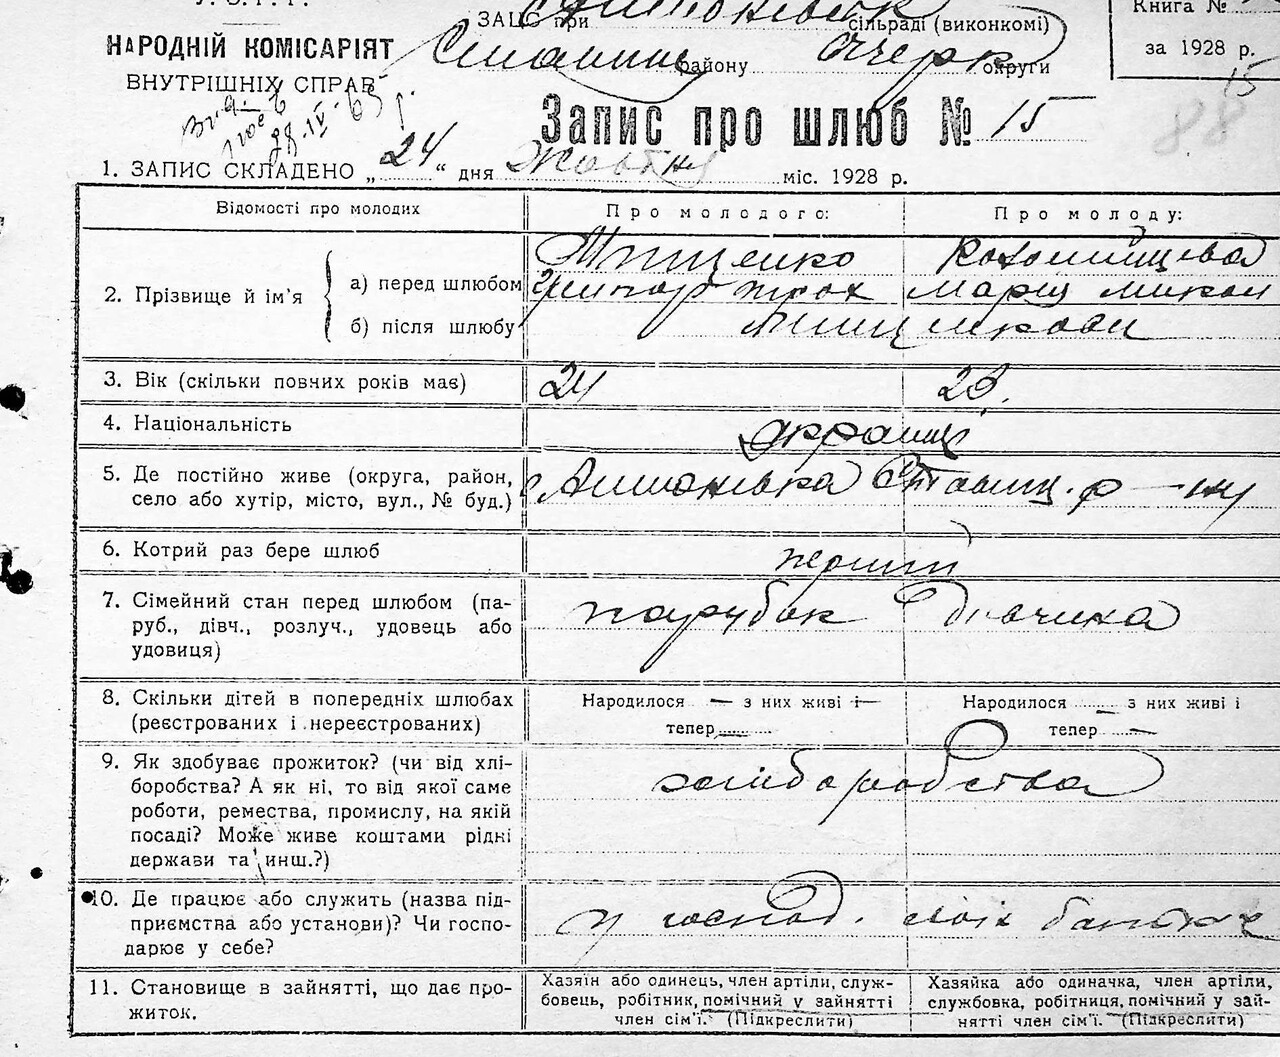 У.С.Р.Р.
НАРОДНІЙ КОМІСАРІЯТ
ВНУТРІШНІХ СПРАВ
ЗАЦС при сільраді (виконкомі)
району округи
Книга №
за 1928 р.
15
88
Запис про шлюб № 15
1. ЗАПИС СКЛАДЕНО „ 24 “ дня Жовтня міс. 1928 р.
Відомості про молодих
Про молодого:
Про молоду:
2. Прізвище й ім'я
а) перед шлюбом
б) після шлюбу
Марія Микол
3. Вік (скільки повних років має)
24
23.
4. Національність
українці
5. Де постійно живе (округа, район,
село або хутір, місто, вул., № буд.)
р-ну
6. Котрий раз бере шлюб
перший
7. Сімейний стан перед шлюбом (па-
руб., дівч., розлуч., удовець або
удовиця)
парубок
дівчина
8. Скільки дітей в попередніх шлюбах
(реєстрованих і нереєстрованих)
Народилося — з них живі і —
тепер
Народилося — з них живі і
тепер —
9. Як здобуває прожиток? (чи від хлі-
боробства? А як ні, то від якої саме
роботи, ремества, промислу, на якій
посаді? Може живе коштами рідні
держави та инш.?)
хліборобства
10. Де працює або служить (назва під-
приємства або установи)? Чи госпо-
дарює у себе?
у господ. своїх батьків
11. Становище в зайнятті, що дає про-
житок.
Хазяїн або одинець, член артіли, служ-
бовець, робітник, помічний у зайнятті
член сім'ї. (Підкреслити)
Хазяйка або одиначка, член артіли,
службовка, робітниця, помічний у зай-
нятті член сім'ї. (Підкреслити)